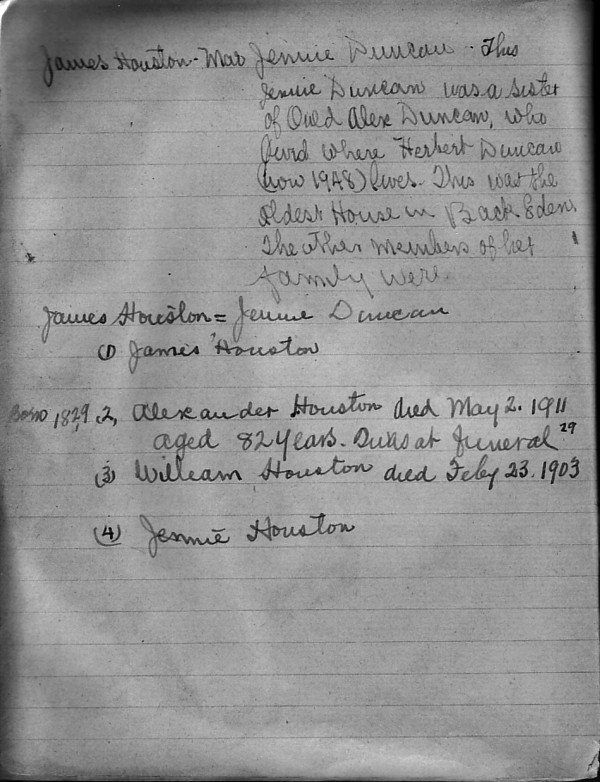 James Houston - Mar Jennie Duncan. This
Jennie Duncan was a sister
of Oued Alex Duncan, who
livd where Herbert Duncan
(now 1948) lives. This was the
oldest House in Back Eden.
The other members of her
family were.
James Houston = Jennie Duncan
(1) James Houston
Born 1829. 2, Alexander Houston died May 2. 1911
aged 82 years. I was at funeral 29
(3) William Houston died Feby 23. 1903
(4) Jennie Houston